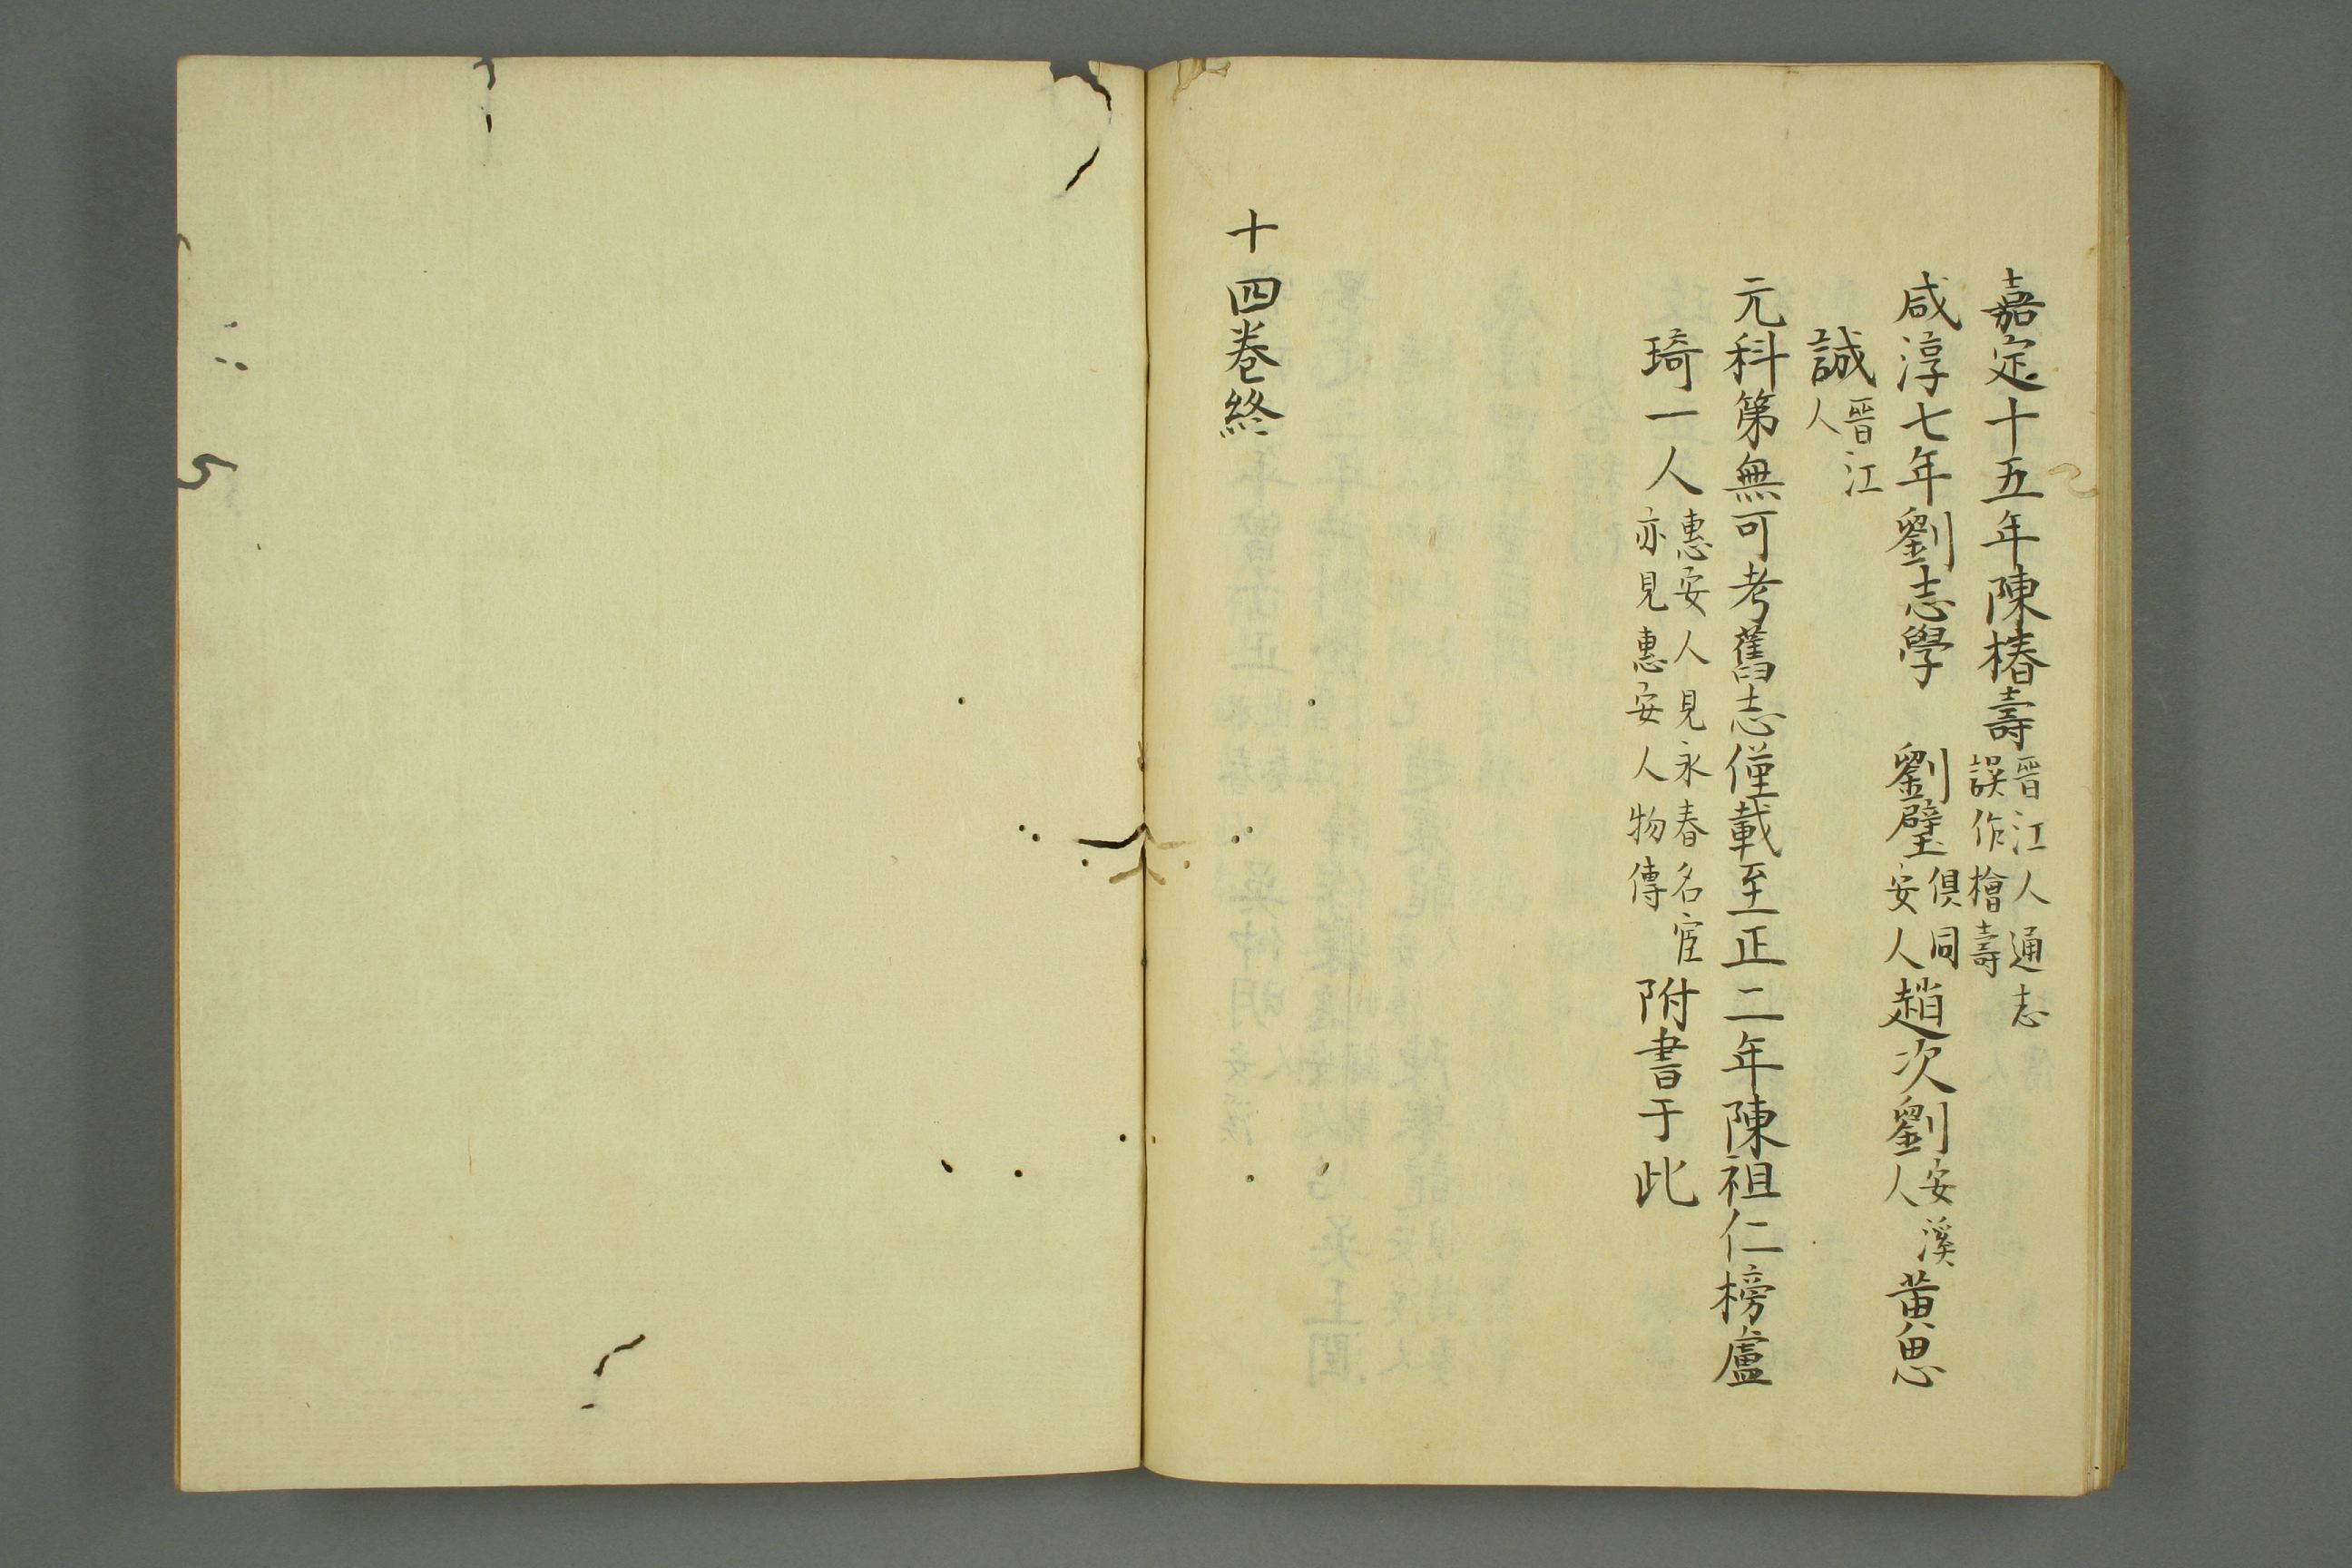 嘉定十五年陳椿壽晉江人通志誤作檜壽
咸淳七年劉志學　劉璧俱同安人趙次劉安溪人黃思
誠晉江人
元科第無可考舊志僅載至正二年陳祖仁榜盧
琦一人惠安人見永春名宦亦見惠安人物傳附書于此
十四卷終